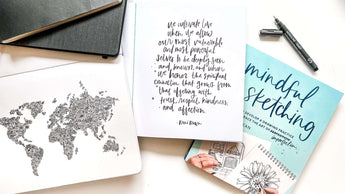 We cultivate love
when we allow
our most vulnerable
and most powerful
selves to be deeply seen
and known, and when
we honor the spiritual
connection that grows from
that offering with
trust, respect, kindness,
and affection.
mindful
sketching
DEVELOP A DRAWING PRACTICE